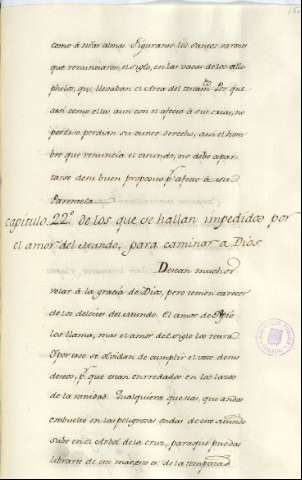 como à sus almas. Figuraron los santos varones
que renunciaron, el siglo, en las vacas de los
que, llevaban el Arca del testamto. Por que
asi como ellas aun con el afecto à sus casas, no
por eso perdian su curso derecho, asi el hom-
bre que renuncia el mundo, no debe apar-
tarse de su buen proposito pr afecto à su
Parentela.
Capitulo 22º. de los que se hallan impedidos por
el amor del Mundo, para caminar a Dios
Desean muchos
volar à la gracia de Dios, pero temen carecer
de los deleites del Mundo. El amor de
los llama, mas el amor del siglo los retira
Y por eso se olvidan de cumplir el voto de sus
deseos, pr que estan enrredados en los lazos
de la vanidad. Qualquiera que seas, que andas
embuelto en las peligrosas ondas de este mundo
sube en el Arbol de la cruz, para que puedas
librarte de este mar, que es de la tempestad